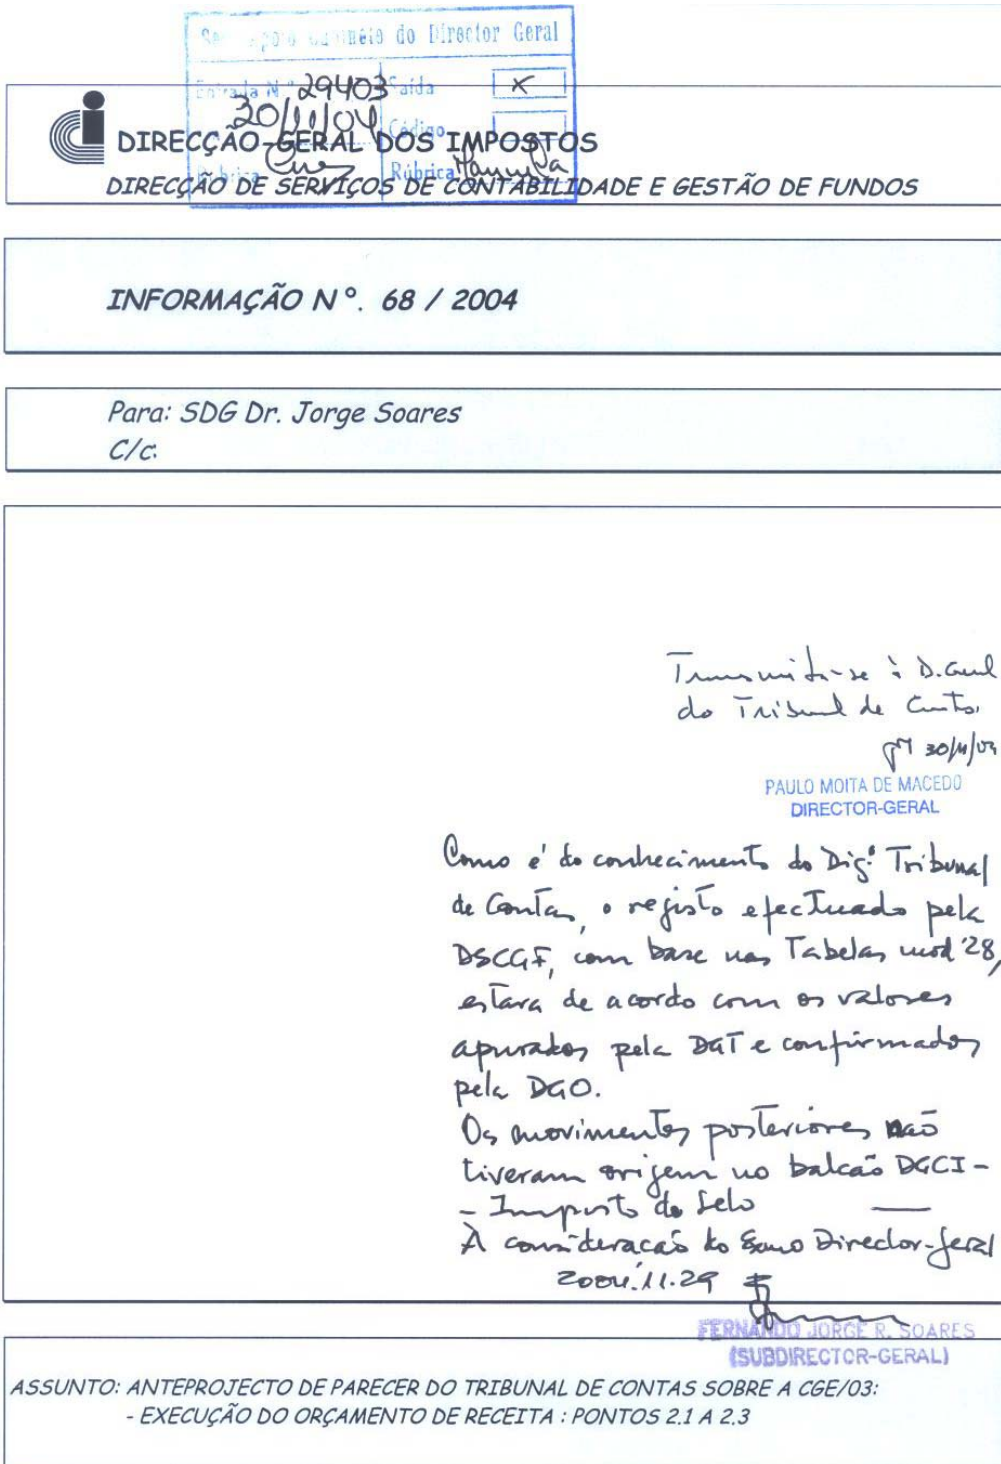 Gabinete do Director Geral
Entrada N.º 29403 Saída X
30/11/04 Código
Rúbrica Rúbrica
DIRECÇÃO-GERAL DOS IMPOSTOS
DIRECÇÃO DE SERVIÇOS DE CONTABILIDADE E GESTÃO DE FUNDOS
INFORMAÇÃO Nº. 68 / 2004
Para: SDG Dr. Jorge Soares
C/c:
Transmita-se à D. Geral
do Tribunal de Contas.
30/11/04
PAULO MOITA DE MACEDO
DIRECTOR-GERAL
Como é do conhecimento do Dig.º Tribunal
de Contas, o registo efectuado pela
DSCGF, com base nas Tabelas mod 28,
estará de acordo com os valores
apurados pela DGT e confirmados
pela DGO.
Os movimentos posteriores não
tiveram origem no balcão DGCI -
- Imposto do Selo
À consideração do Exmo Director-Geral
2004.11.29
FERNANDO JORGE R. SOARES
(SUBDIRECTOR-GERAL)
ASSUNTO: ANTEPROJECTO DE PARECER DO TRIBUNAL DE CONTAS SOBRE A CGE/03:
- EXECUÇÃO DO ORÇAMENTO DE RECEITA : PONTOS 2.1 A 2.3